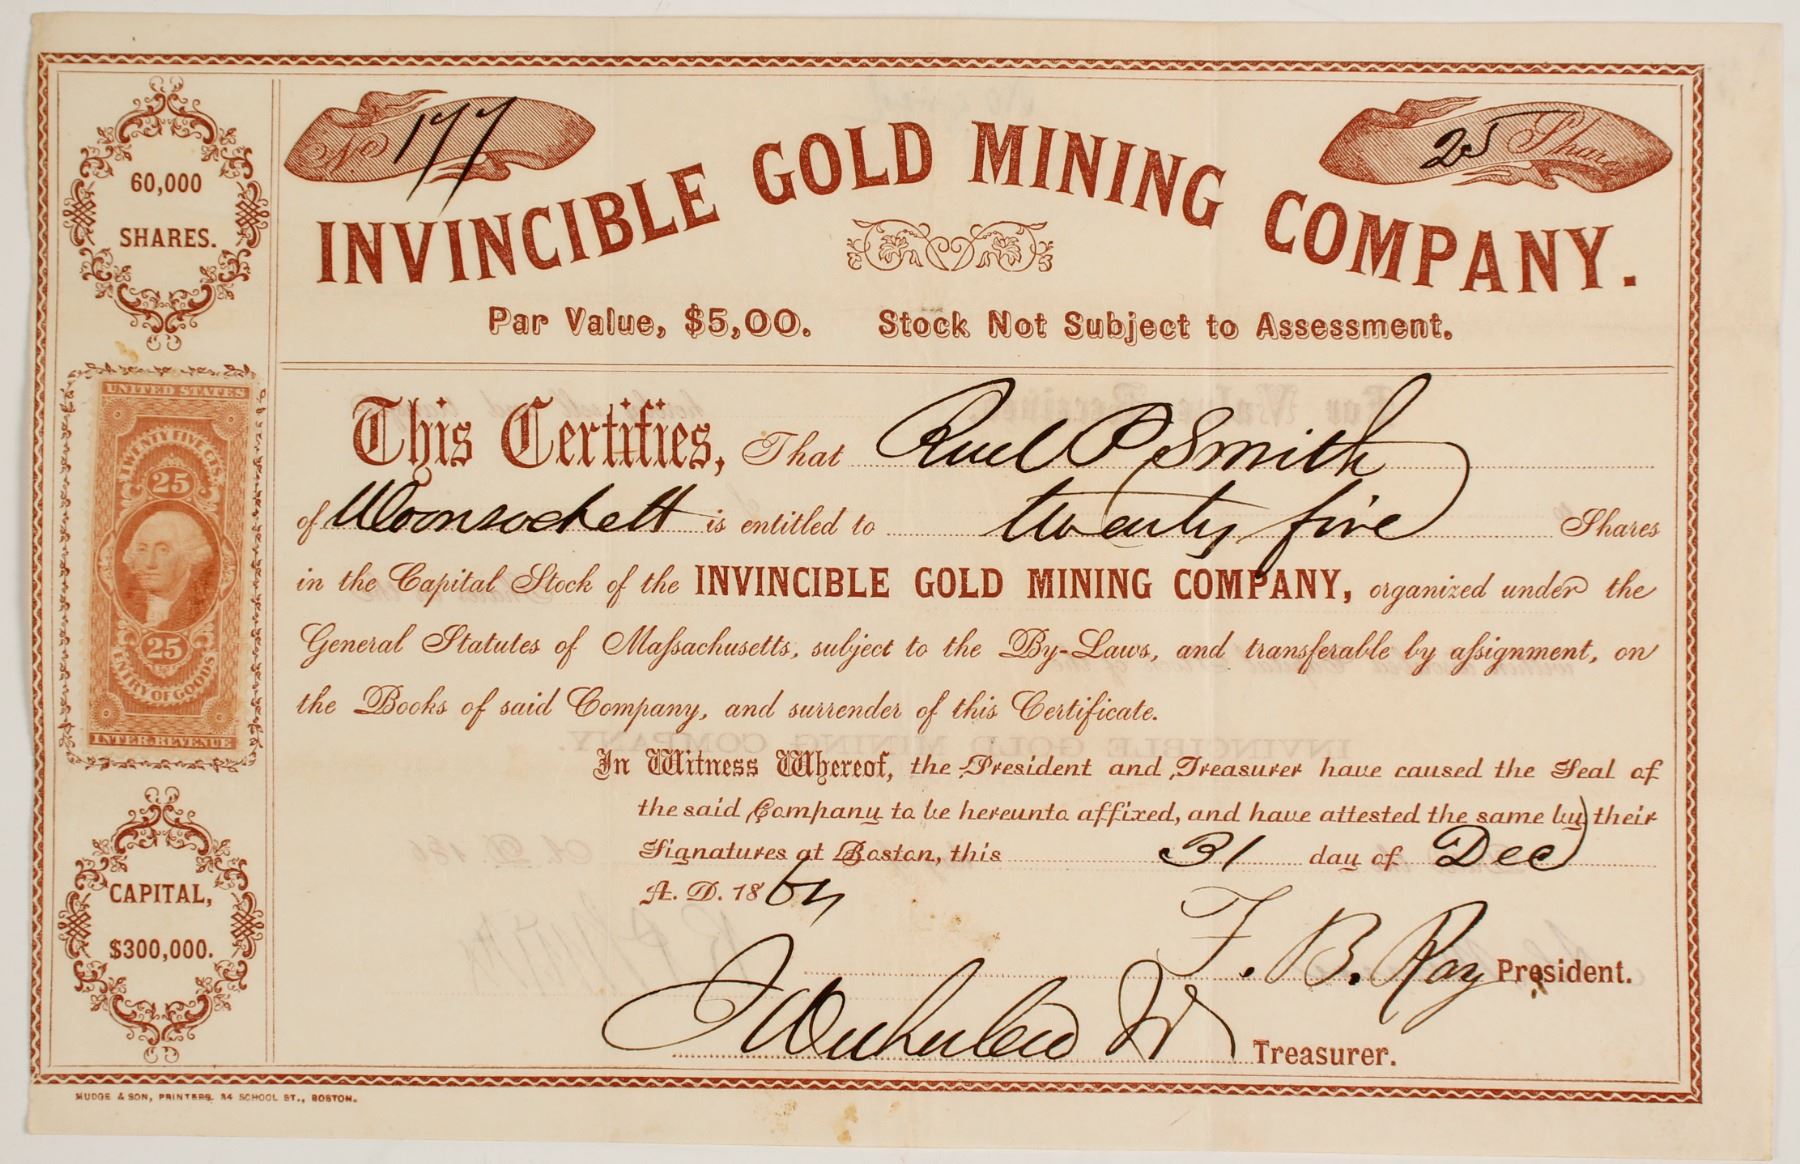 60,000
SHARES.
UNITED STATES
TWENTY FIVE CTS.
25
25
ENTRY OF GOODS
INTER. REVENUE
CAPITAL,
$300,000.
No 177
25 Shares
INVINCIBLE GOLD MINING COMPANY.
Par Value, $5,00. Stock Not Subject to Assessment.
This Certifies, That Ruel P Smith
of Woonsockett is entitled to twenty five Shares
in the Capital Stock of the INVINCIBLE GOLD MINING COMPANY, organized under the
General Statutes of Massachusetts, subject to the By-Laws, and transferable by assignment, on
the Books of said Company, and surrender of this Certificate.
In Witness Whereof, the President and Treasurer have caused the Seal of
the said Company to be hereunto affixed, and have attested the same by their
Signatures at Boston, this 31 day of Dec
A. D. 1864
F. B. Ray President.
Treasurer.
MUDGE & SON, PRINTERS. 34 SCHOOL ST., BOSTON.